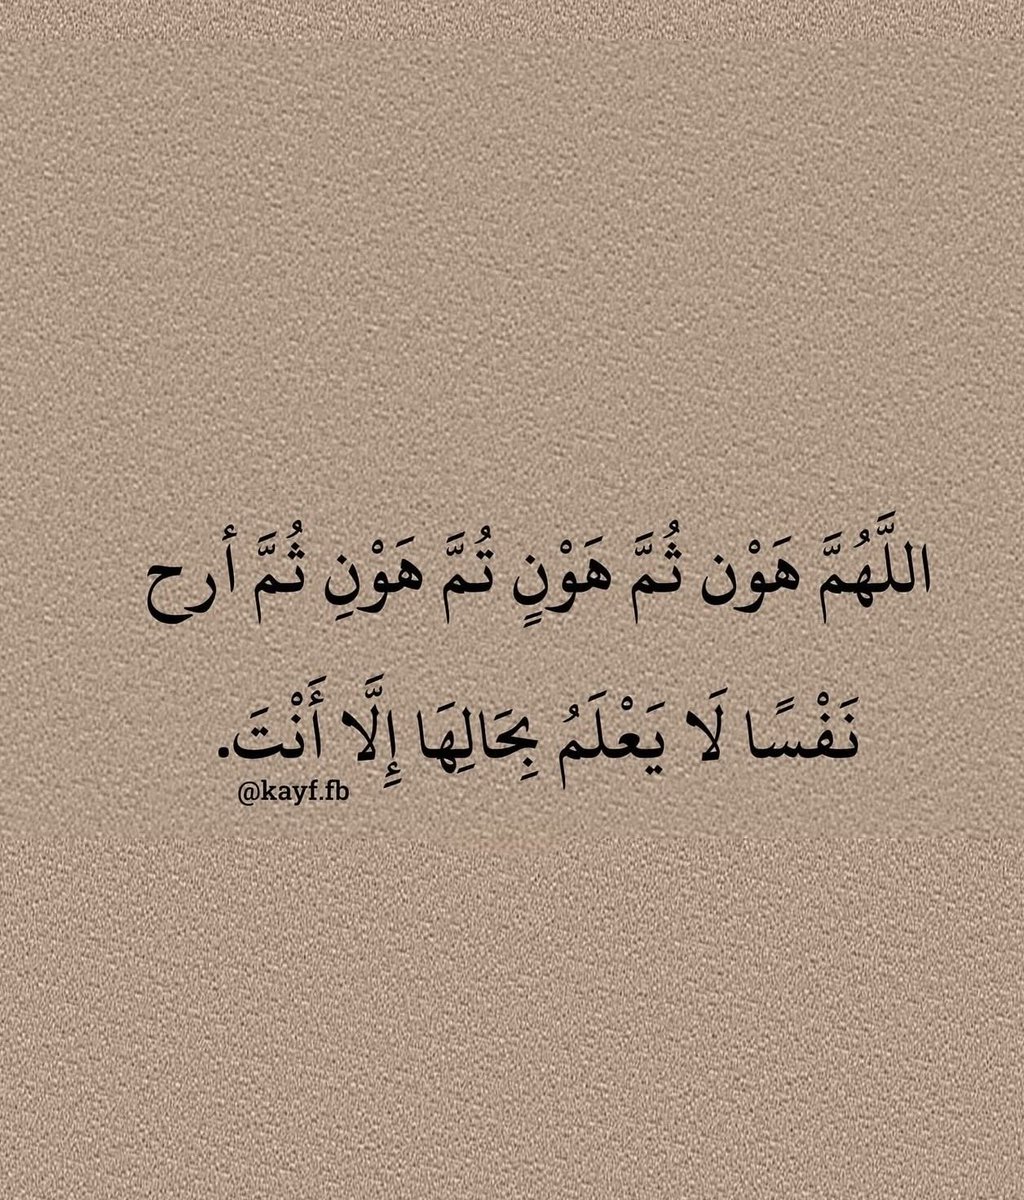 اللَّهُمَّ هَوْن ثُمَّ هَوْنٍ تُمَّ هَوْنِ ثُمَّ أرح
نَفْسًا لَا يَعْلَمُ بِحَالِهَا إِلَّا أَنْتَ.
@kayf.fb